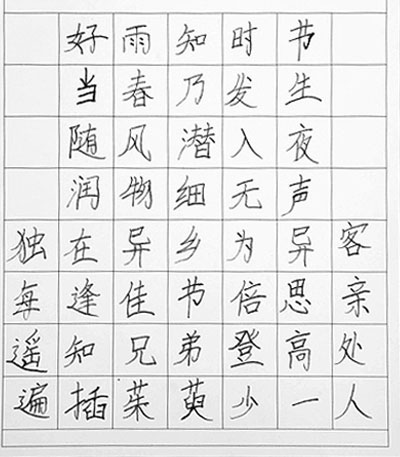 好雨知时节
当春乃发生
随风潜入夜
润物细无声
独在异乡为异客
每逢佳节倍思亲
遥知兄弟登高处
遍插茱萸少一人